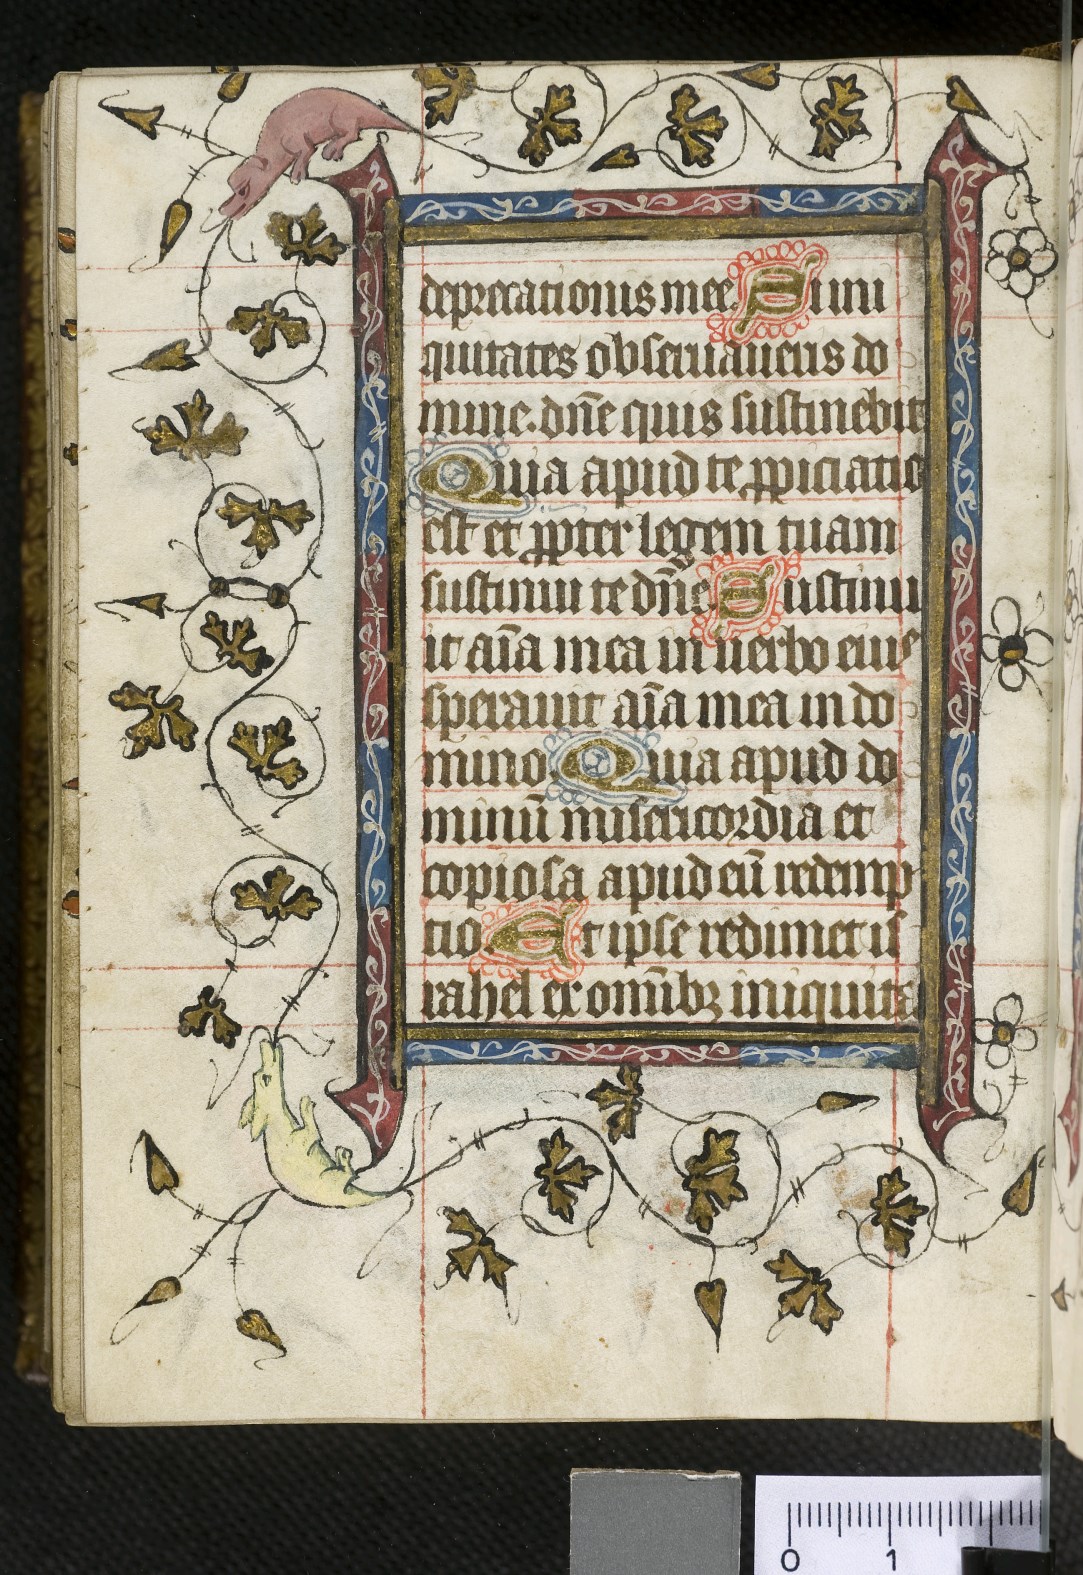 deprecationis mee. Si ini
quitates obseruaueris do
mine. dn̄e quis sustinebit
Quia apud te ꝓpiciatio
est et ꝓpter legem tuam
sustinui te dn̄e Sustinu
it aīa mea in uerbo eius
sperauit aīa mea in do
mino. Quia apud do
minū misericordia et
copiosa apud eū redemp
tio. Et ipse redimet is
rahel ex omībꝫ iniquita
0 1